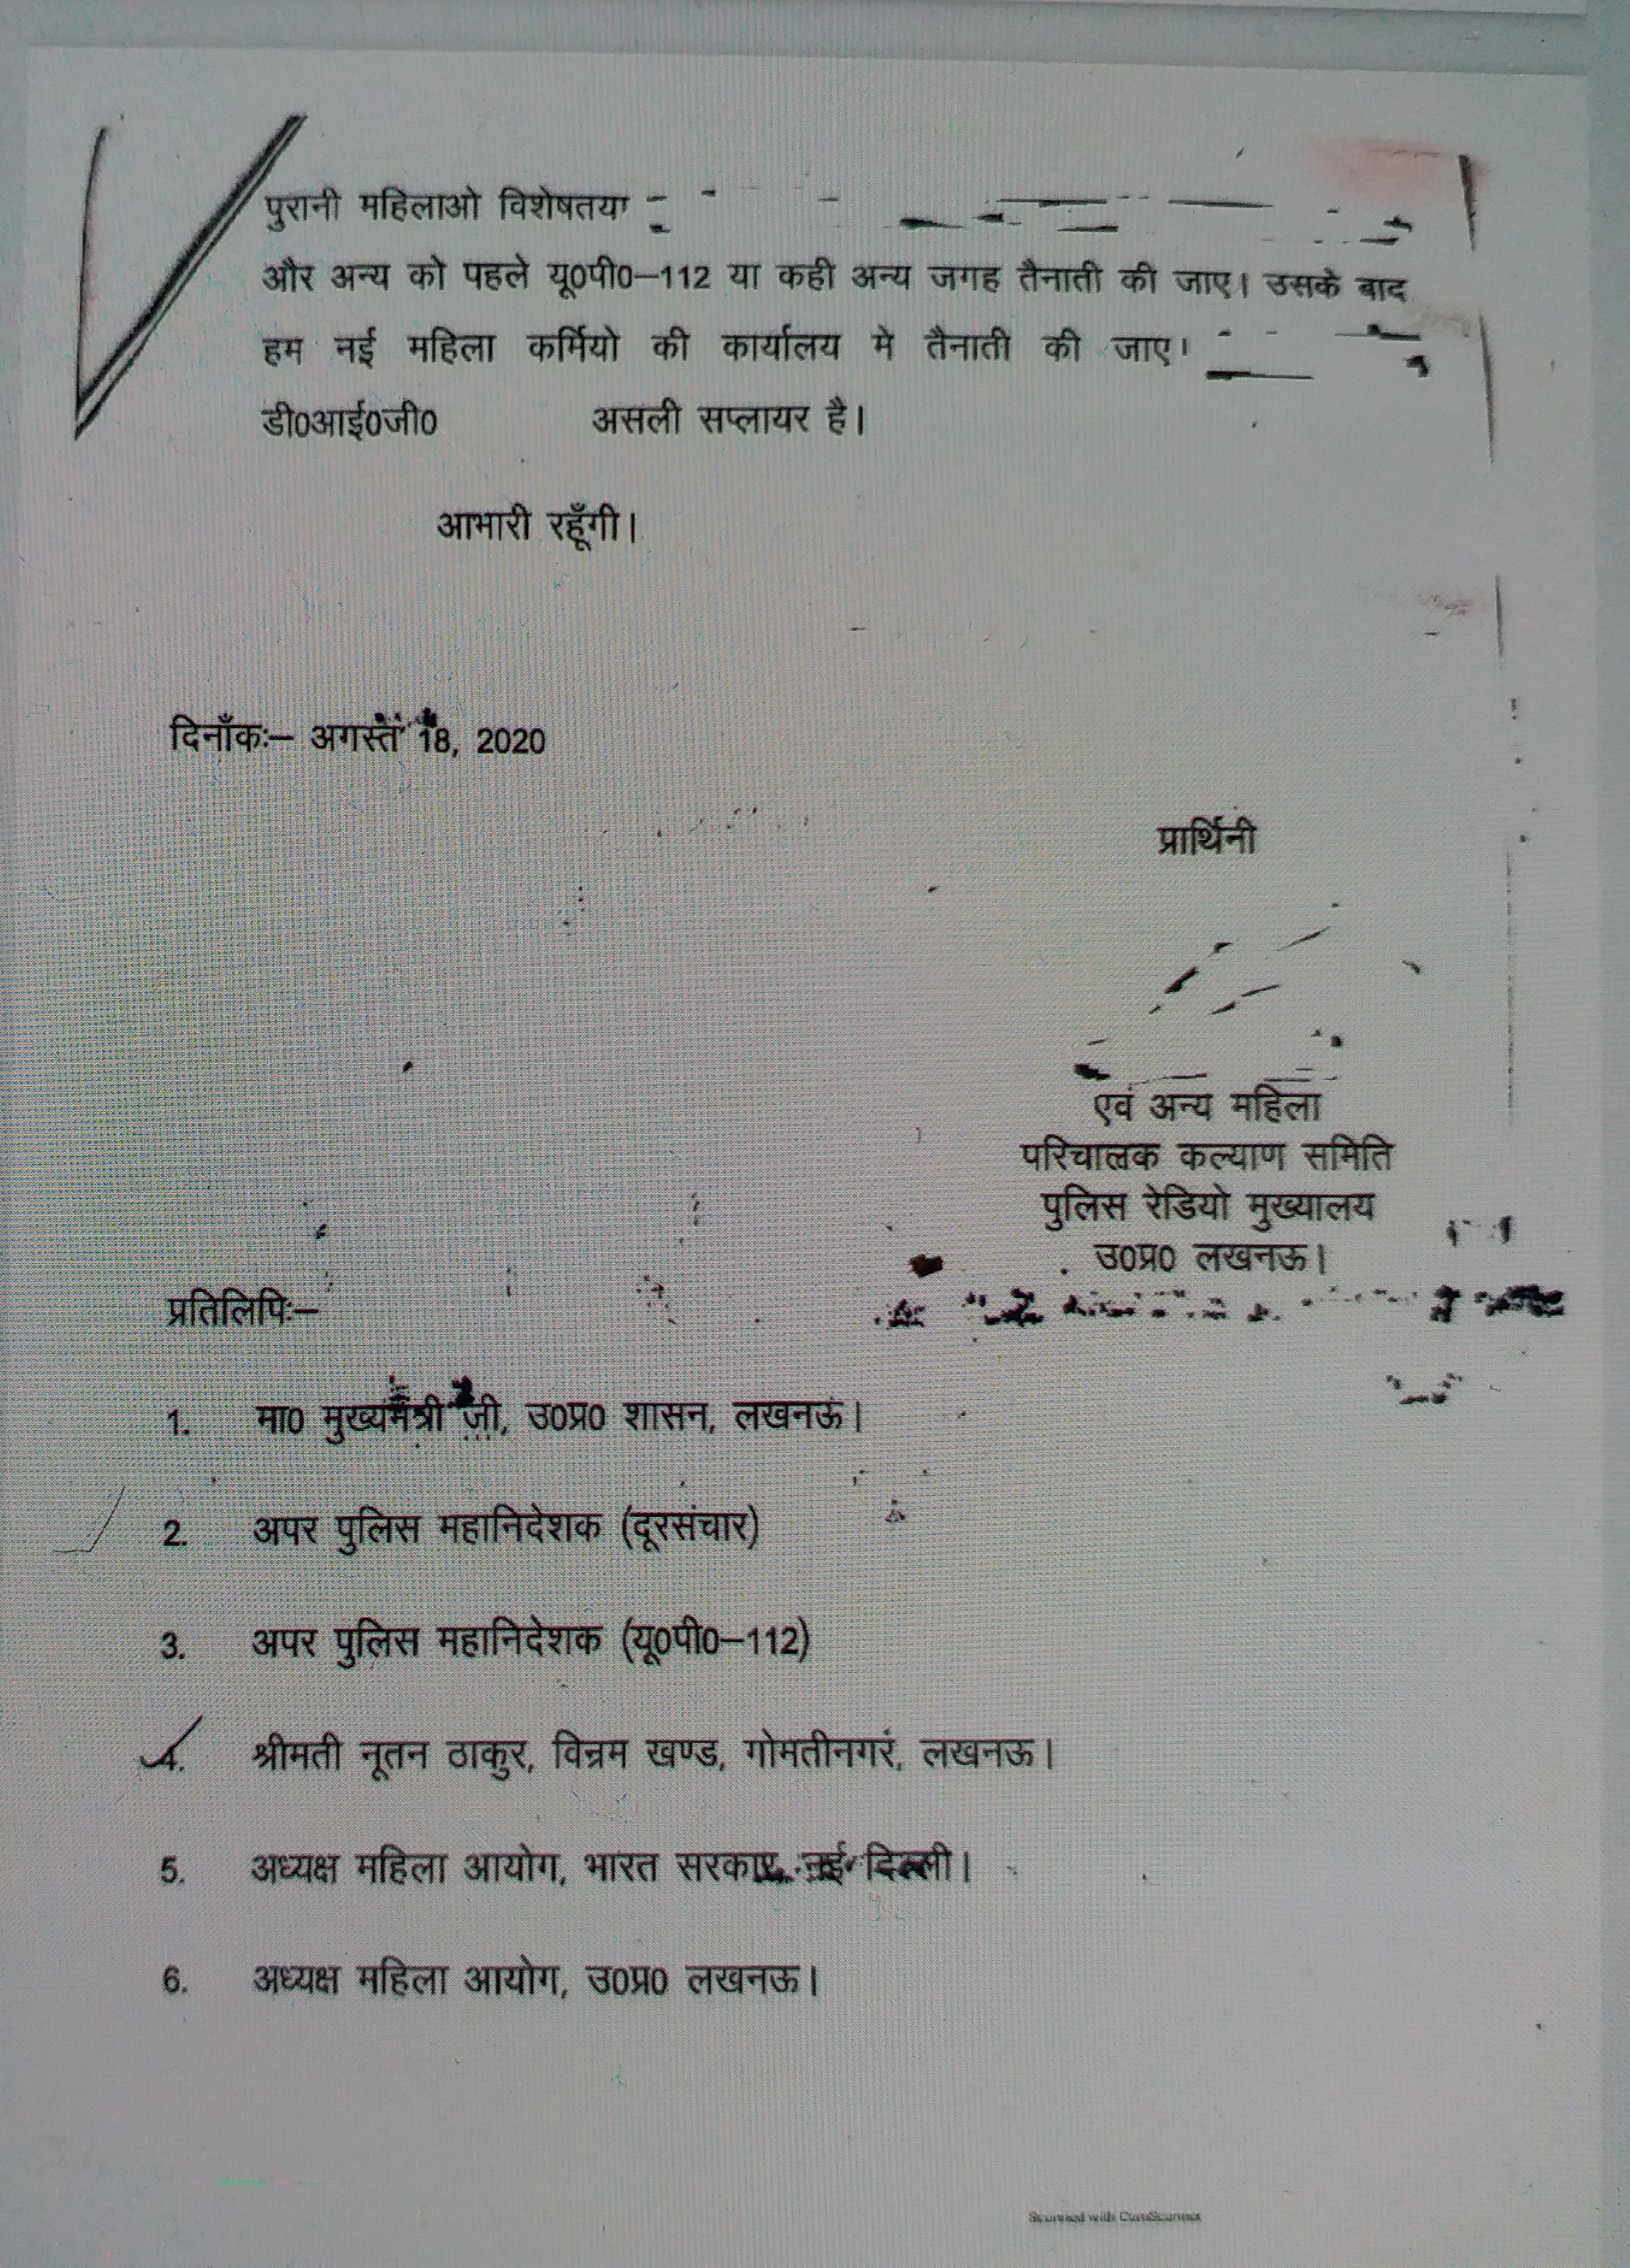 पुरानी महिलाओ विशेषतया
और अन्य को पहले यू0पी0–112 या कही अन्य जगह तैनाती की जाए। उसके बाद
हम नई महिला कर्मियो की कार्यालय मे तैनाती की जाए।
डी0आई0जी0 असली सप्लायर है।
आभारी रहूँगी।
दिनाँकः– अगस्त 18, 2020
प्रार्थिनी
एवं अन्य महिला
परिचालक कल्याण समिति
पुलिस रेडियो मुख्यालय
उ0प्र0 लखनऊ।
प्रतिलिपिः–
1. मा0 मुख्यमंत्री जी, उ0प्र0 शासन, लखनऊ।
2. अपर पुलिस महानिदेशक (दूरसंचार)
3. अपर पुलिस महानिदेशक (यू0पी0–112)
4. श्रीमती नूतन ठाकुर, विन्रम खण्ड, गोमतीनगर, लखनऊ।
5. अध्यक्ष महिला आयोग, भारत सरकार, नई दिल्ली।
6. अध्यक्ष महिला आयोग, उ0प्र0 लखनऊ।
Scanned with CamScanner